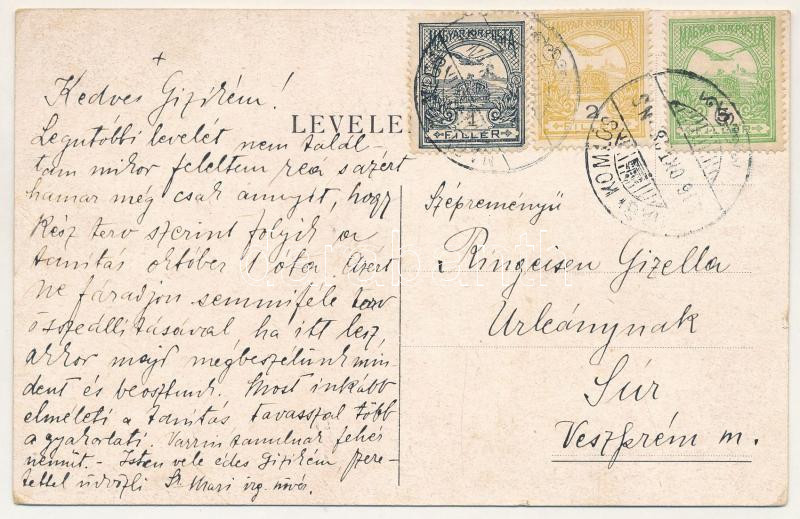 Kedves Gizikém!
Legutóbbi levelét nem talál-
tam mikor feleltem reá s azért
hamar még csak annyit, hogy
kész terv szerint folyik a
tanítás október 1 óta. Azért
ne fáradjon semmiféle terv
összeállításával ha itt lesz,
akkor majd megbeszélünk min-
dent és beosztunk. Most inkább
elméleti a tanítás, tavasszal több
a gyakorlati. Varrni tanulnak fehér
neműt. - Isten vele édes Gizikém szere-
tettel üdvözli Sr. Mari irg. nővér
LEVELE
MAGYAR KIR. POSTA
1
FILLÉR
MAGYAR KIR. POSTA
2
FILLÉR
MAGYAR KIR. POSTA
5
FILLÉR
Szépreményű
Ringeisen Gizella
Urleánynak
Súr
Veszprém m.